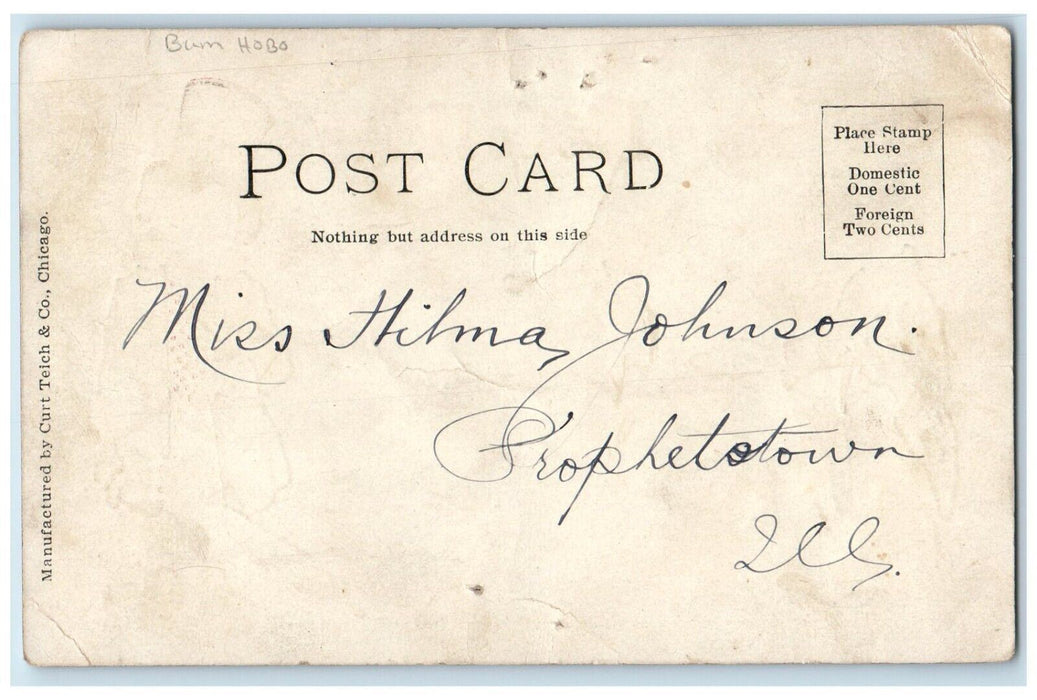 Bum HOBO
POST CARD
Nothing but address on this side
Place Stamp
Here
Domestic
One Cent
Foreign
Two Cents
Manufactured by Curt Teich & Co., Chicago.
Miss Hilma Johnson.
Prophetstown
Ill.